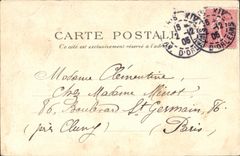 CARTE POSTALE
Ce côté est exclusivement réservé à l'adresse
D'ORLÉANS
Madame Clémentine,
Chez Madame Miérot
86, Boulevard St Germain, 86
(près Cluny) Paris